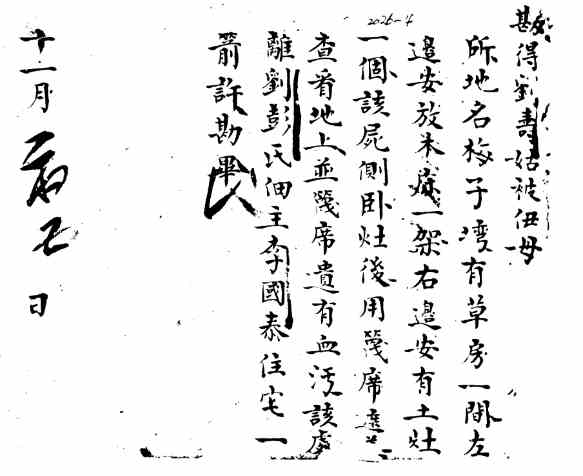 2026-4
勘得劉壽姑被伊母
所地名梅子灣有草房一間左
邉安放木床一架右邉安有土灶
一個該屍側卧灶後用篾席遮
查看地上並篾席遺有血汚該處
離劉彭氏佃主李國泰住宅一
箭許勘畢
十一月初七日